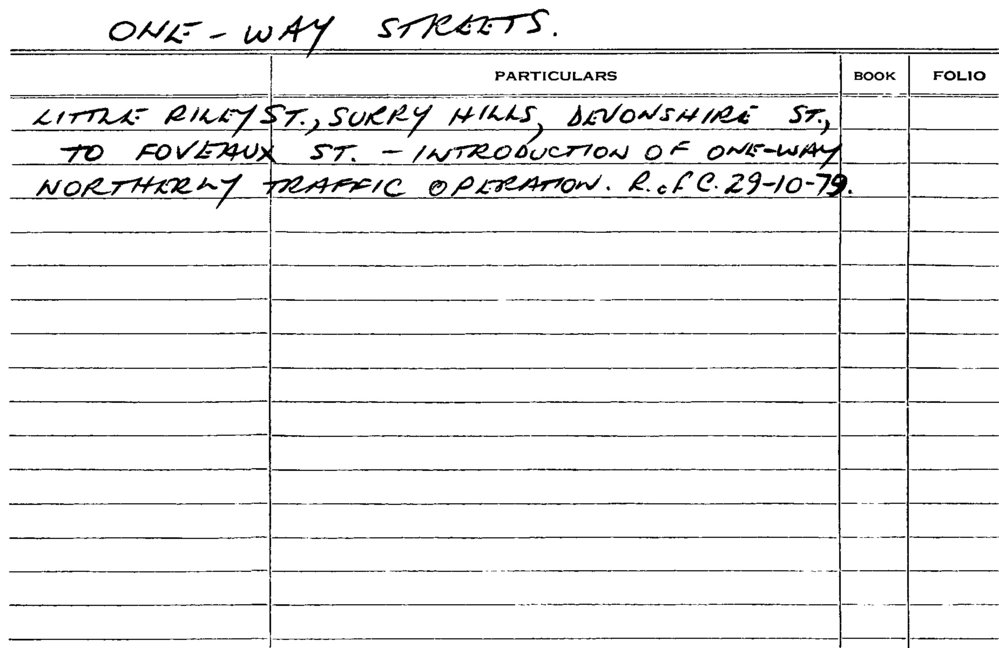 ONE-WAY STREETS.
PARTICULARS BOOK FOLIO
LITTLE RILEY ST., SURRY HILLS, DEVONSHIRE ST.,
TO FOVEAUX ST. - INTRODUCTION OF ONE-WAY
NORTHERLY TRAFFIC OPERATION. R.of C. 29-10-79.